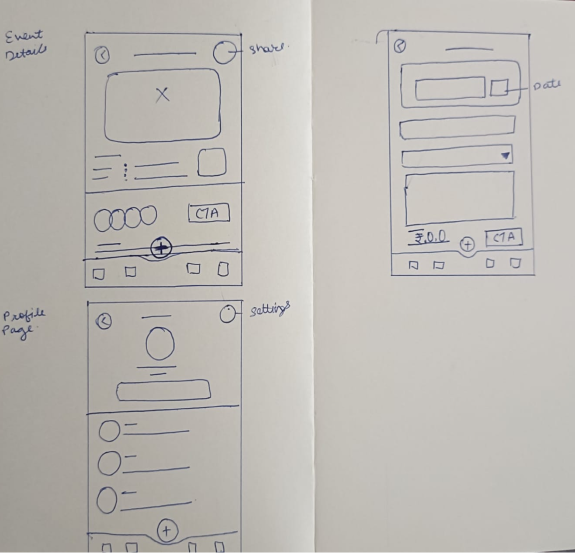 Event
Details
Share.
CTA
Profile
Page.
Settings
Date
₹.0.0
CTA